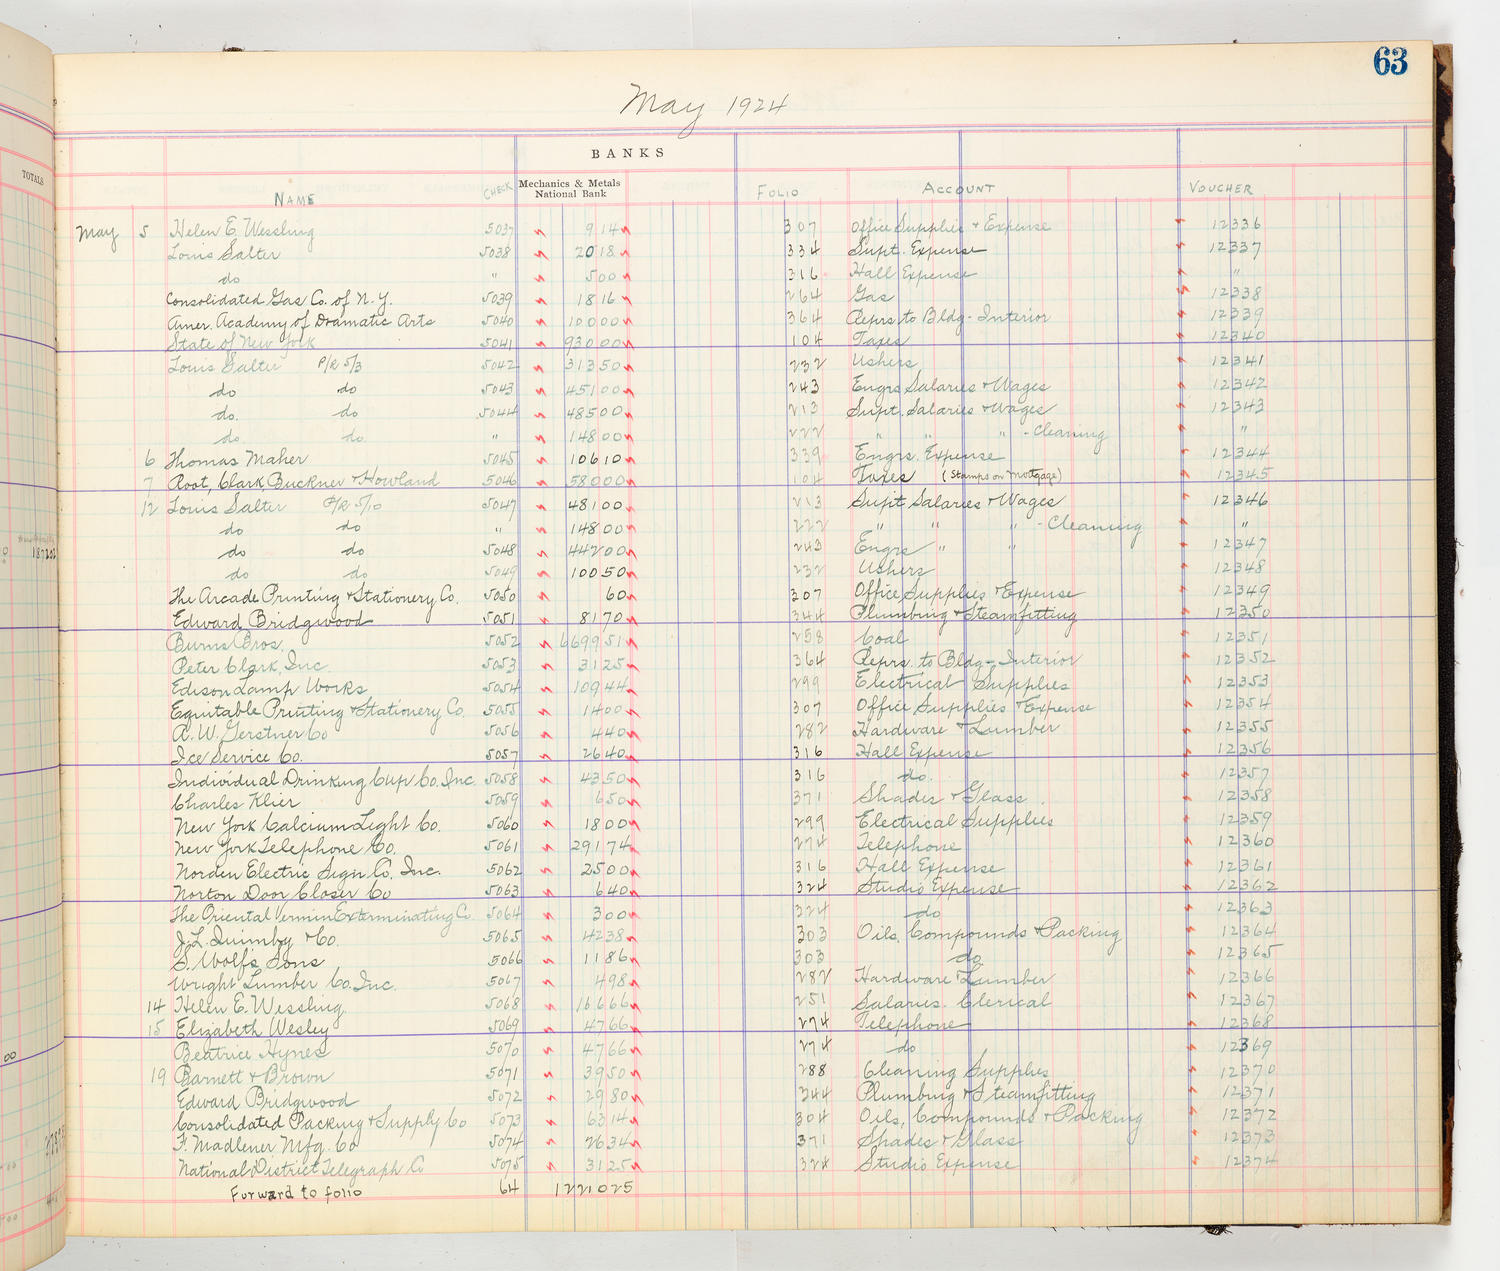 63
May 1924
TOTALS
BANKS
NAME CHECK Mechanics & Metals National Bank FOLIO ACCOUNT VOUCHER
May 5 Helen E. Wessling 5037 9 14 307 Office Supplies & Expense 12336
Louis Salter 5038 20 18 334 Supt. Expense 12337
do " 5 00 316 Hall Expense "
Consolidated Gas Co. of N.Y. 5039 18 16 264 Gas 12338
Amer. Academy of Dramatic Arts 5040 100 00 364 Reprs to Bldg - Interior 12339
State of New York 5041 930 00 104 Taxes 12340
Louis Salter P/R 5/3 5042 313 50 232 Ushers 12341
do do 5043 451 00 243 Engrs Salaries & Wages 12342
do. do 5044 485 00 213 Supt. Salaries & Wages 12343
do do " 148 00 222 " " " - Cleaning "
6 Thomas Maher 5045 106 10 339 Engrs. Expense 12344
7 Root, Clark Buckner & Howland 5046 580 00 104 Taxes (Stamps on Mortgage) 12345
12 Louis Salter P/R 5/10 5047 481 00 213 Supt Salaries & Wages 12346
do do " 148 00 222 " " " - Cleaning "
do do 5048 442 00 243 Engrs " " 12347
do do 5049 100 50 232 Ushers 12348
The Arcade Printing & Stationery Co. 5050 60 307 Office Supplies & Expense 12349
Edward Bridgwood 5051 81 70 344 Plumbing & Steamfitting 12350
Burns Bros. 5052 6699 51 258 Coal 12351
Peter Clark, Inc. 5053 31 25 364 Reprs. to Bldg - Interior 12352
Edison Lamp Works 5054 109 44 299 Electrical Supplies 12353
Equitable Printing & Stationery Co. 5055 14 00 307 Office Supplies & Expense 12354
A. W. Gerstner Co 5056 4 40 282 Hardware & Lumber 12355
Ice Service Co. 5057 26 40 316 Hall Expense 12356
Individual Drinking Cup Co. Inc. 5058 43 50 316 do. 12357
Charles Klier 5059 6 50 371 Shades & Glass 12358
New York Calcium Light Co. 5060 18 00 299 Electrical Supplies 12359
New York Telephone Co. 5061 291 74 274 Telephone 12360
Norden Electric Sign Co, Inc. 5062 25 00 316 Hall Expense 12361
Norton Door Closer Co 5063 6 40 324 Studio Expense 12362
The Oriental Vermin Exterminating Co. 5064 3 00 324 do 12363
J. L. Quimby & Co. 5065 42 38 303 Oils, Compounds & Packing 12364
S. Wolfs Sons 5066 11 86 303 do. 12365
Wright Lumber Co. Inc. 5067 4 98 282 Hardware & Lumber 12366
14 Helen E. Wessling 5068 166 66 251 Salaries. Clerical 12367
15 Elizabeth Wesley 5069 47 66 274 Telephone 12368
Beatrice Hynes 5070 47 66 274 do 12369
19 Barnett & Brown 5071 39 50 288 Cleaning Supplies 12370
Edward Bridgwood 5072 29 80 344 Plumbing & Steamfitting 12371
Consolidated Packing & Supply Co 5073 63 14 304 Oils, Compounds & Packing 12372
F. Madlener Mfg. Co 5074 26 34 371 Shades & Glass 12373
National District Telegraph Co 5075 31 25 324 Studio Expense 12374
Forward to folio 64 12210 25